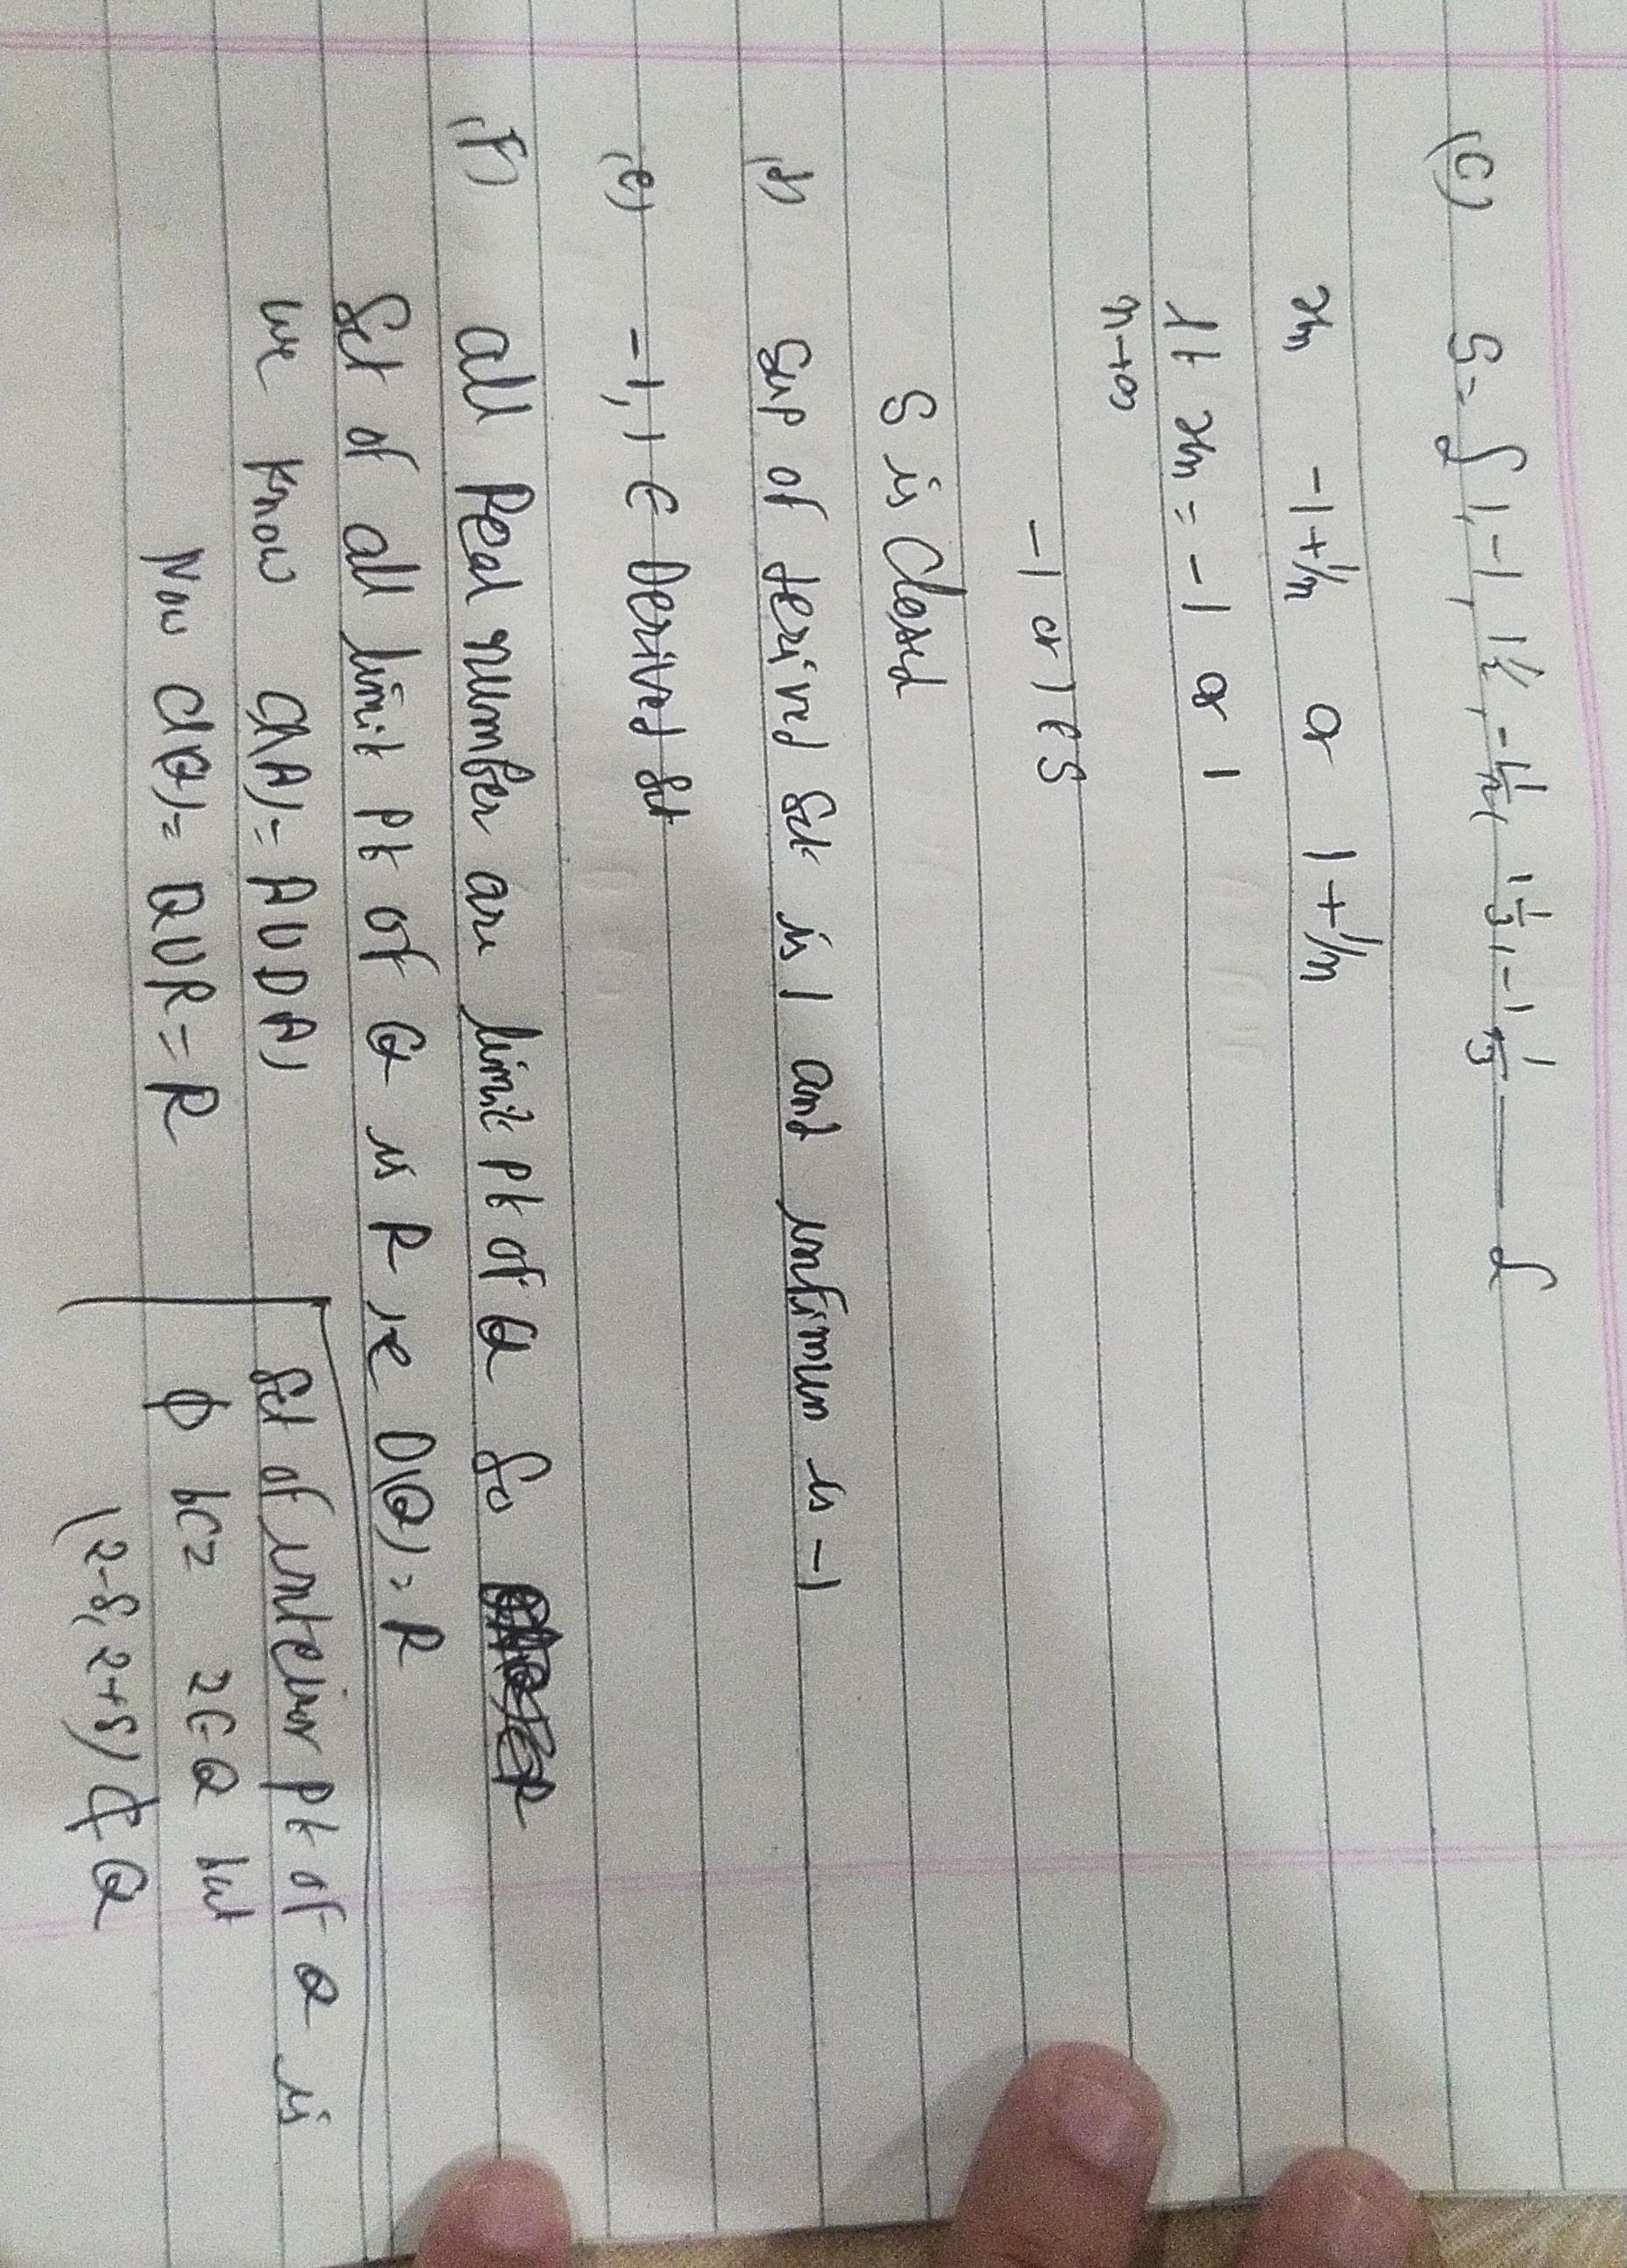 (c) S = { 1, -1, 1 1/2, -1 1/2, 1 1/3, -1 1/3 ---- }
xn -1+1/n or 1+1/n
lt xn = -1 or 1
n→∞
-1 or 1 ∈ S
S is closed
(d) Sup of derived set is 1 and infimum is -1
(e) -1, 1 ∈ Derived set
(f) all Real number are limit pt of Q So
Set of all limit pt of Q is R ie D(Q) = R
we know C(A) = A U D(A)
Now C(Q) = Q U R = R
Set of interior pt of Q is
ϕ bcz 2 ∈ Q but
(2-δ, 2+δ) ⊄ Q